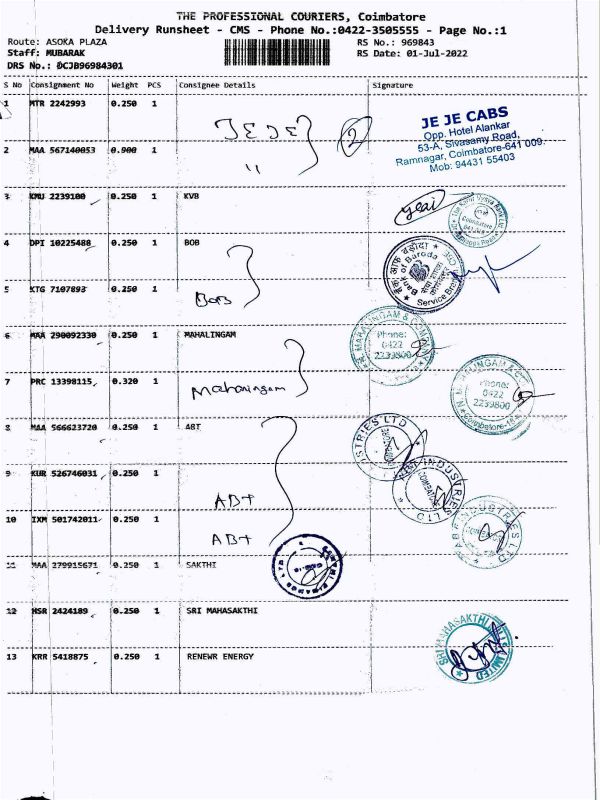 THE PROFESSIONAL COURIERS, Coimbatore
Delivery Runsheet - CMS - Phone No.:0422-3505555 - Page No.:1
Route: ASOKA PLAZA
RS No.: 969843
Staff: MUBARAK
RS Date: 01-Jul-2022
DRS No.: DCJB96984301
S No Consignment No Weight PCS Consignee Details Signature
1 MTR 2242993 0.250 1
JEJE 2
JE JE CABS
Opp. Hotel Alankar
53-A, Sivasamy Road,
Ramnagar, Coimbatore-641 009.
Mob: 94431 55403
2 MAA 567140053 0.900 1 "
3 KMU 2239100 0.250 1 KVB
4 DPI 10225488 0.250 1 BOB
Bank of Baroda
Service Branch
5 KTG 7107893 0.250 1
BOB
6 MAA 290092330 0.250 1 MAHALINGAM
Phone:
0422
2239800
7 PRC 13398115 0.320 1
Mahalingam
Phone:
0422
2239800
8 MAA 566623720 0.250 1 ABT
9 KUR 526746031 0.250 1
ABT
INDUSTRIES LTD
COIMBATORE
10 IXM 501742011 0.250 1
ABT
11 MAA 279915671 0.250 1 SAKTHI
12 HSR 2424189 0.250 1 SRI MAHASAKTHI
SRI MAHASAKTHI MILLS LIMITED
13 KRR 5418875 0.250 1 RENEWR ENERGY